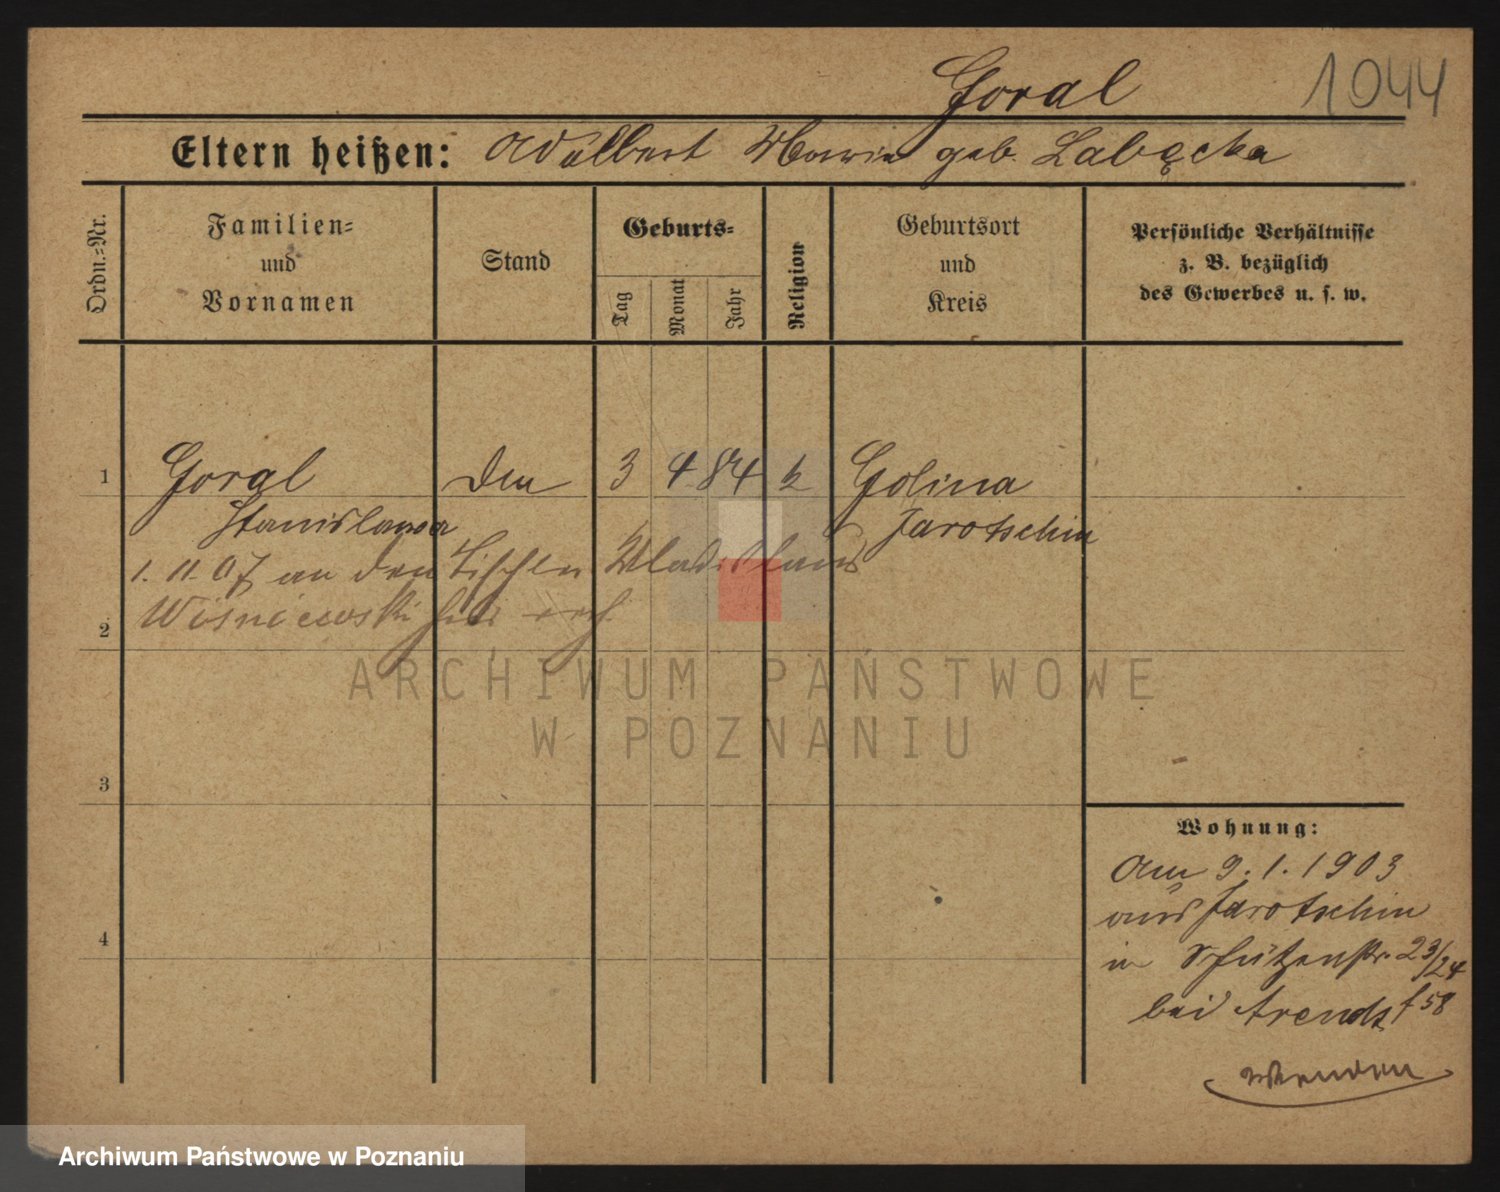 Goral 1044
Eltern heißen: Adalbert Marie geb. Labęcka
Ordn.=Nr.
Familien=
und
Vornamen
Stand
Geburts=
Tag
Monat
Jahr
Religion
Geburtsort
und
Kreis
Persönliche Verhältnisse
z. B. bezüglich
des Gewerbes u. s. w.
1 Goral 3 4 84 k Golina
Stanislawa Jarotschin
1. 11. 07 an den Tischler Wladislaus
2 Wisniewski hier
3
4
Wohnung:
Am 9. 1. 1903
aus Jarotschin
in Schützenstr. 23/24
bei Arendt f 58
Wenden
ARCHIWUM PAŃSTWOWE
W POZNANIU
Archiwum Państwowe w Poznaniu